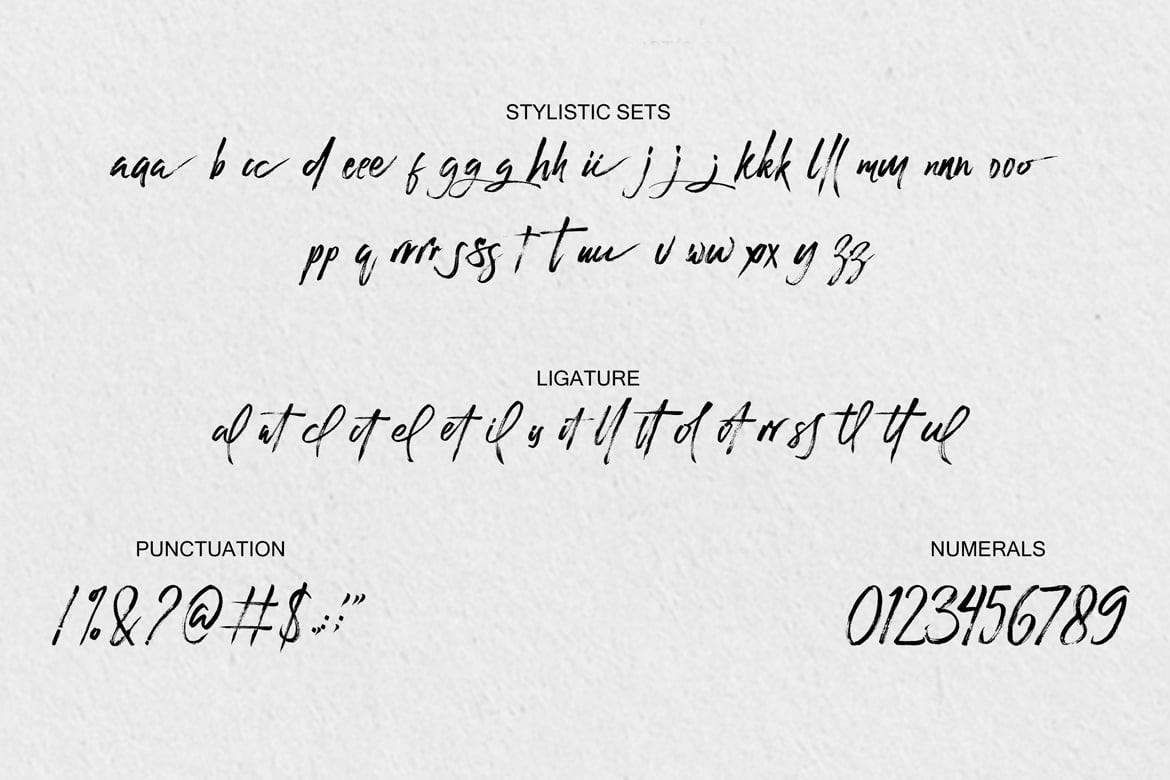 STYLISTIC SETS
aaa b cc d eee f ggg hh ii j j j kkk lll mm nnn ooo
pp q rrrr sss t t uu v ww xx y zz
LIGATURE
al at cl ct el et il is it ll tt ol ot rr ss tl tt ul
PUNCTUATION
!%&?@#$.,:;'"
NUMERALS
0123456789